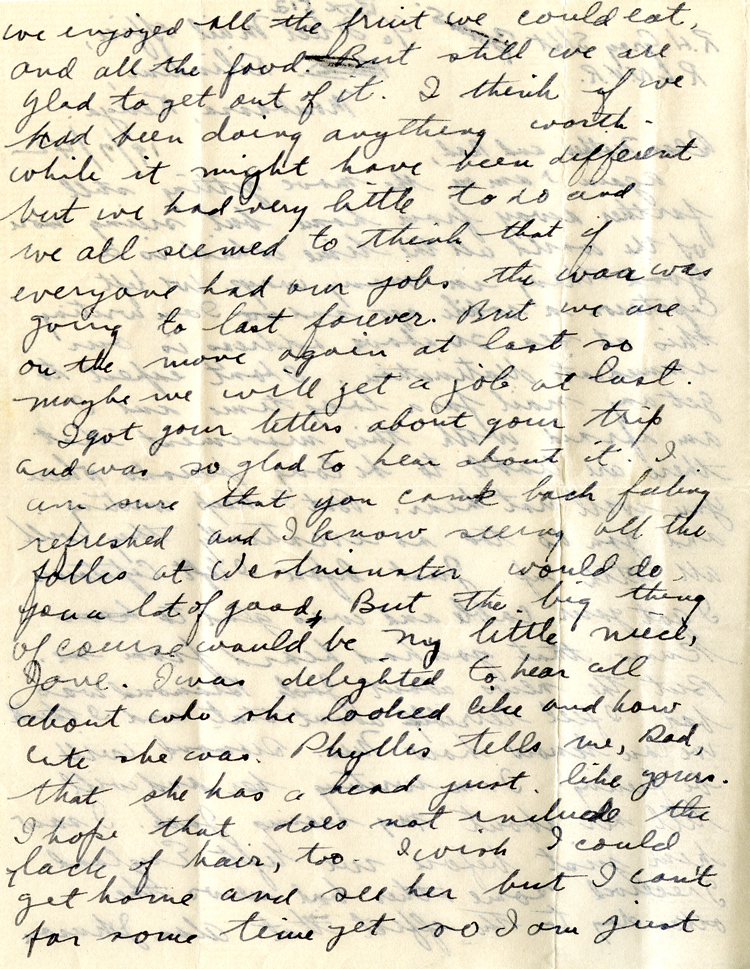 we enjoyed all the fruit we could eat,
and all the food. But still we are
glad to get out of it. I think if we
had been doing anything worth-
while it might have been different
but we had very little to do and
we all seemed to think that if
everyone had our jobs the waa was
going to last forever. But we are
on the move again at last so
maybe we will get a job at last.
I got your letters about your trip
and was so glad to hear about it. I
am sure that you came back feeling
refreshed and I know seeing all the
folks at Westminster would do
you a lot of good, But the big thing
of course would be my little niece,
Jane. I was delighted to hear all
about who she looked like and how
cute she was. Phyllis tells me, Dad,
that she has a head just like yours.
I hope that does not include the
lack of hair, too. I wish I could
get home and see her but I can't
for some time yet so I am just